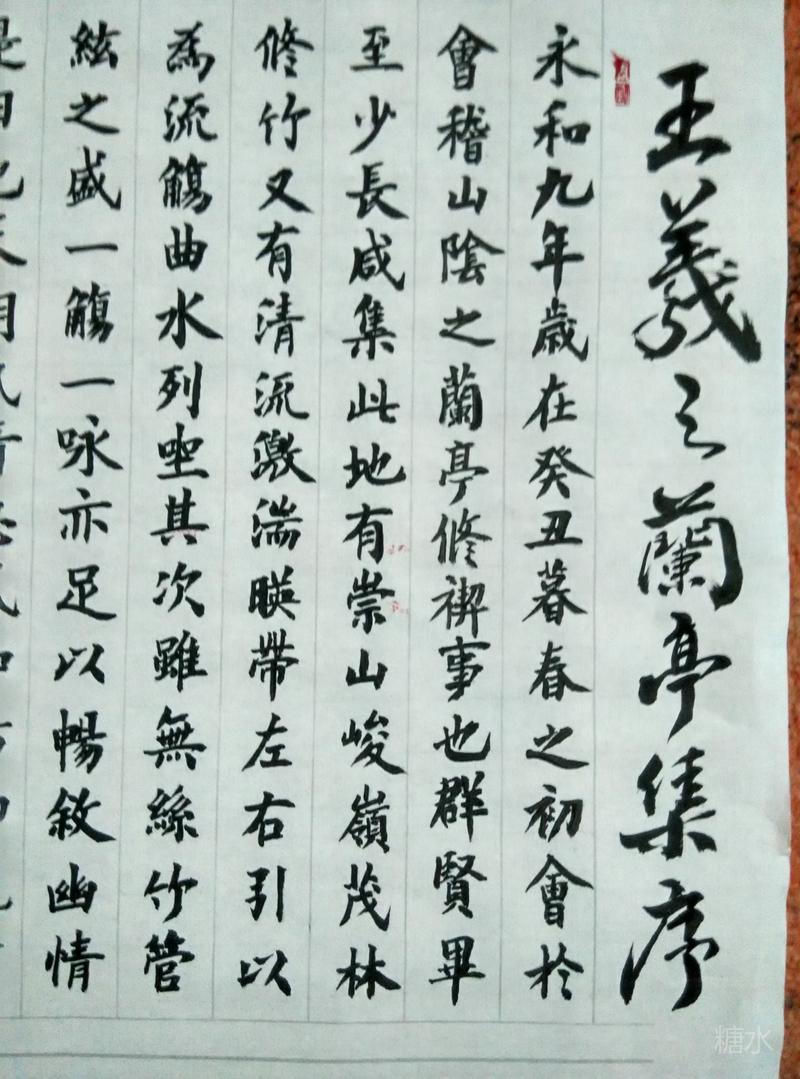 王羲之蘭亭集序
永和九年歲在癸丑暮春之初會於
會稽山陰之蘭亭修禊事也群賢畢
至少長咸集此地有崇山峻嶺茂林
修竹又有清流激湍暎帶左右引以
為流觴曲水列坐其次雖無絲竹管
絃之盛一觴一咏亦足以暢敘幽情
糖水